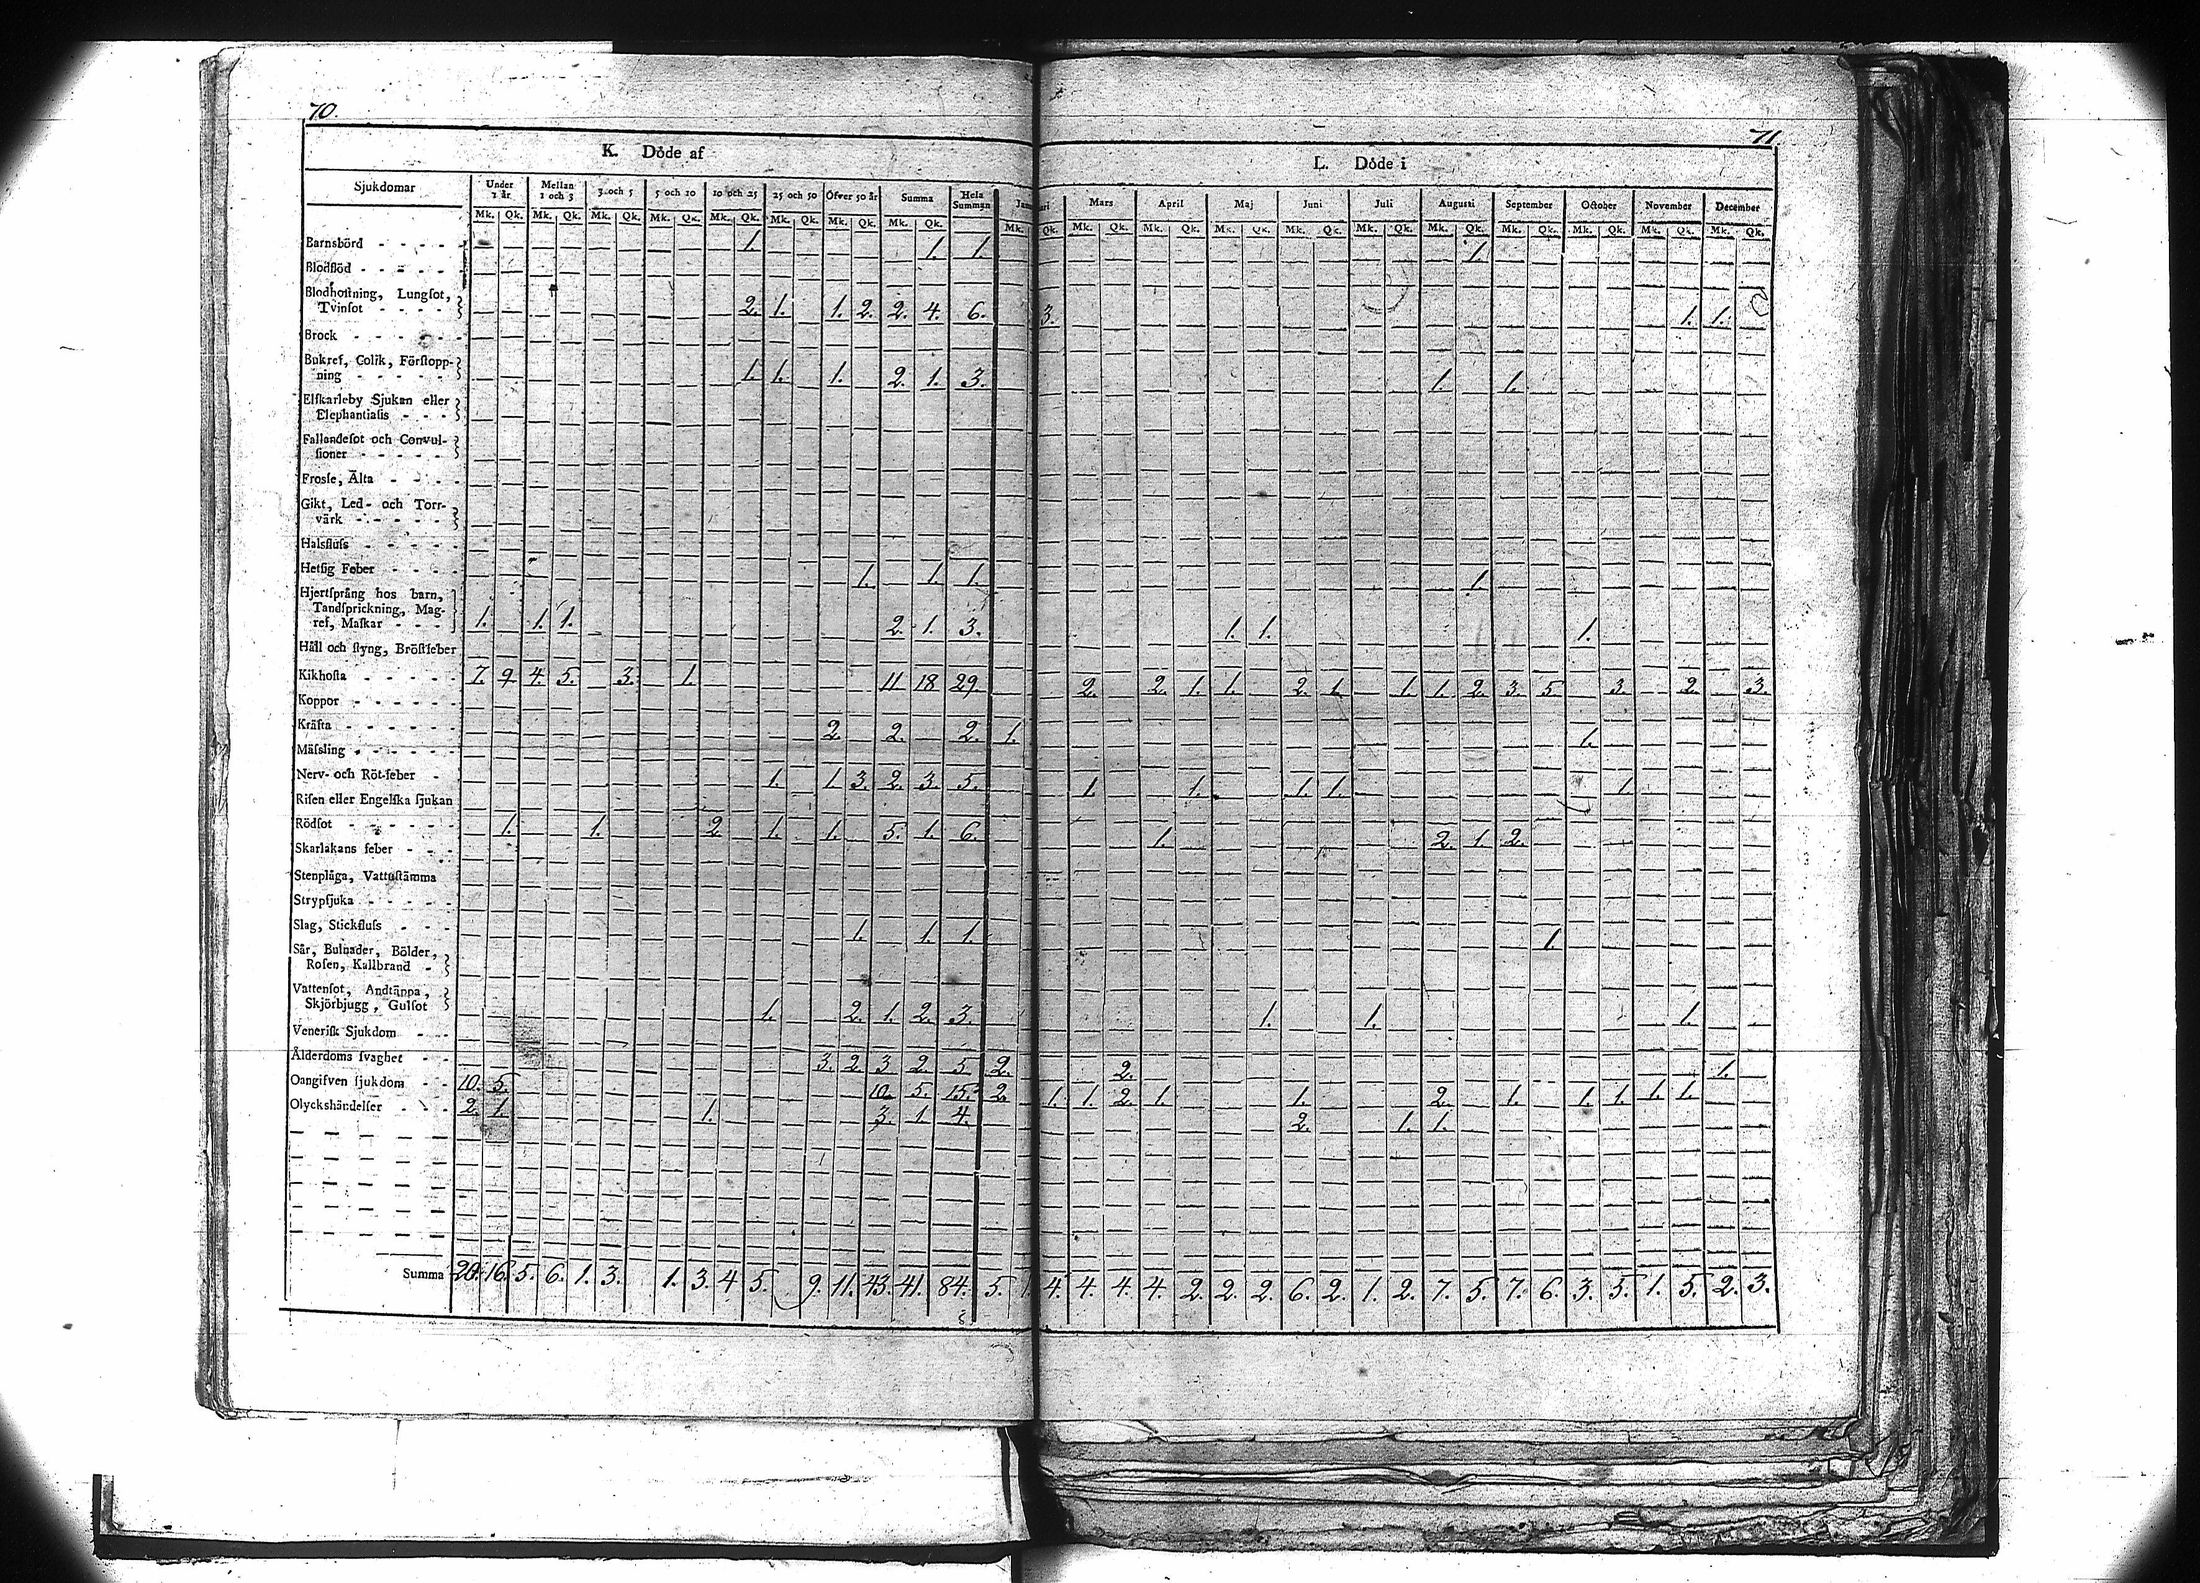 70.
K. Döde af
Sjukdomar Under 1 år Mellan 1 och 3 3 och 5 5 och 10 10 och 25 25 och 50 Öfver 50 år Summa Hela Summan
Mk. Qk. Mk. Qk. Mk. Qk. Mk. Qk. Mk. Qk. Mk. Qk. Mk. Qk.
Barnsbörd - - - - - 1. 1. 1.
Blodflöd - - - - - -
Blodhoſtning, Lungſot,
Tvinſot - - - - 2. 1. 1. 2. 2. 4. 6.
Brock - - - - - - -
Bukref, Colik, Förſtopp-
ning - - - - - 1. 1. 1. 2. 1. 3.
Elſkarleby Sjukan eller
Elephantiaſis - - -
Fallandeſot och Convul-
ſioner - - - - -
Froſſe, Älta - - - -
Gikt, Led- och Torr-
värk - - - - -
Halsfluſs - - - - -
Hetſig Feber - - - - 1. 1. 1.
Hjertſprång hos barn,
Tandſprickning, Mag-
ref, Maſkar - - - 1. 1. 1. 2. 1. 3.
Håll och ſtyng, Bröſtfeber
Kikhoſta - - - - - 7. 9. 4. 5. 3. 1. 11 18 29.
Koppor - - - - - -
Kräfta - - - - - - 2. 2. 2.
Mäſsling - - - - - -
Nerv- och Röt-feber - 1. 1. 3. 2. 3. 5.
Riſen eller Engelſka ſjukan
Rödſot - - - - - - 1. 1. 2. 1. 1. 5. 1. 6.
Skarlakans feber - - -
Stenplåga, Vattuſtämma
Strypſjuka - - - - -
Slag, Stickfluſs - - - 1. 1. 1.
Sår, Bulnader, Bölder,
Roſen, Kallbrand -
Vattenſot, Andtäppa,
Skjörbjugg, Gulſot 1. 2. 1. 2. 3.
Veneriſk Sjukdom - - -
Ålderdoms ſvaghet - - 3. 2. 3 2. 5.
Oangifven ſjukdom - - 10. 5. 10. 5. 15.
Olyckshändelſer - - - 2. 1. 1. 3. 1. 4.
Summa 20. 16. 5. 6. 1. 3. 1. 3. 4 5. 9. 11. 43. 41. 84.
71
L. Döde i
Mars April Maj Juni Juli Auguſti September October November December
Mk. Qk. Mk. Qk. Mk. Qk. Mk. Qk. Mk. Qk. Mk. Qk. Mk. Qk. Mk. Qk. Mk. Qk. Mk. Qk. Mk. Qk.
1.
3. 1. 1.
1. 1.
1.
1. 1. 1.
2. 2. 1. 1. 2. 1. 1. 1. 2. 3. 5. 3. 2. 3.
1. 1.
1. 1. 1. 1. 1.
1. 2. 1. 2.
1.
1. 1. 1.
2. 2. 1.
2. 1. 1. 2. 1. 1. 2. 1. 1. 1. 1. 1.
2. 1. 1.
5. 1. 4. 4. 4. 4. 2. 2. 2. 6. 2. 1. 2. 7. 5. 7. 6. 3. 5. 1. 5. 2. 3.